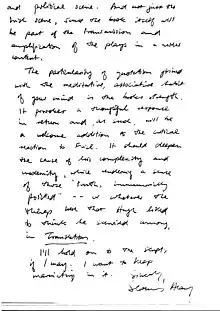 and political scene. And not just the
book scene, since the book itself will
be part of the transmission and
amplification of the plays in a wider
context.
The particularity of quotation joined
with the meditative, associative habit
of your mind is the book's strength.
It provokes a thoughtful response
in return and, as such, will be
a welcome addition to the critical
reaction to Friel. It should deepen
the sense of his complexity and
modernity, while endowing a sense
of those truths, immemorially
posited -- or whatever the
that Hugh liked
to think he survived among,
in Translations.
I'll hold on to the script,
if I may. I want to keep
in it. Sincerely,
Seamus Heaney